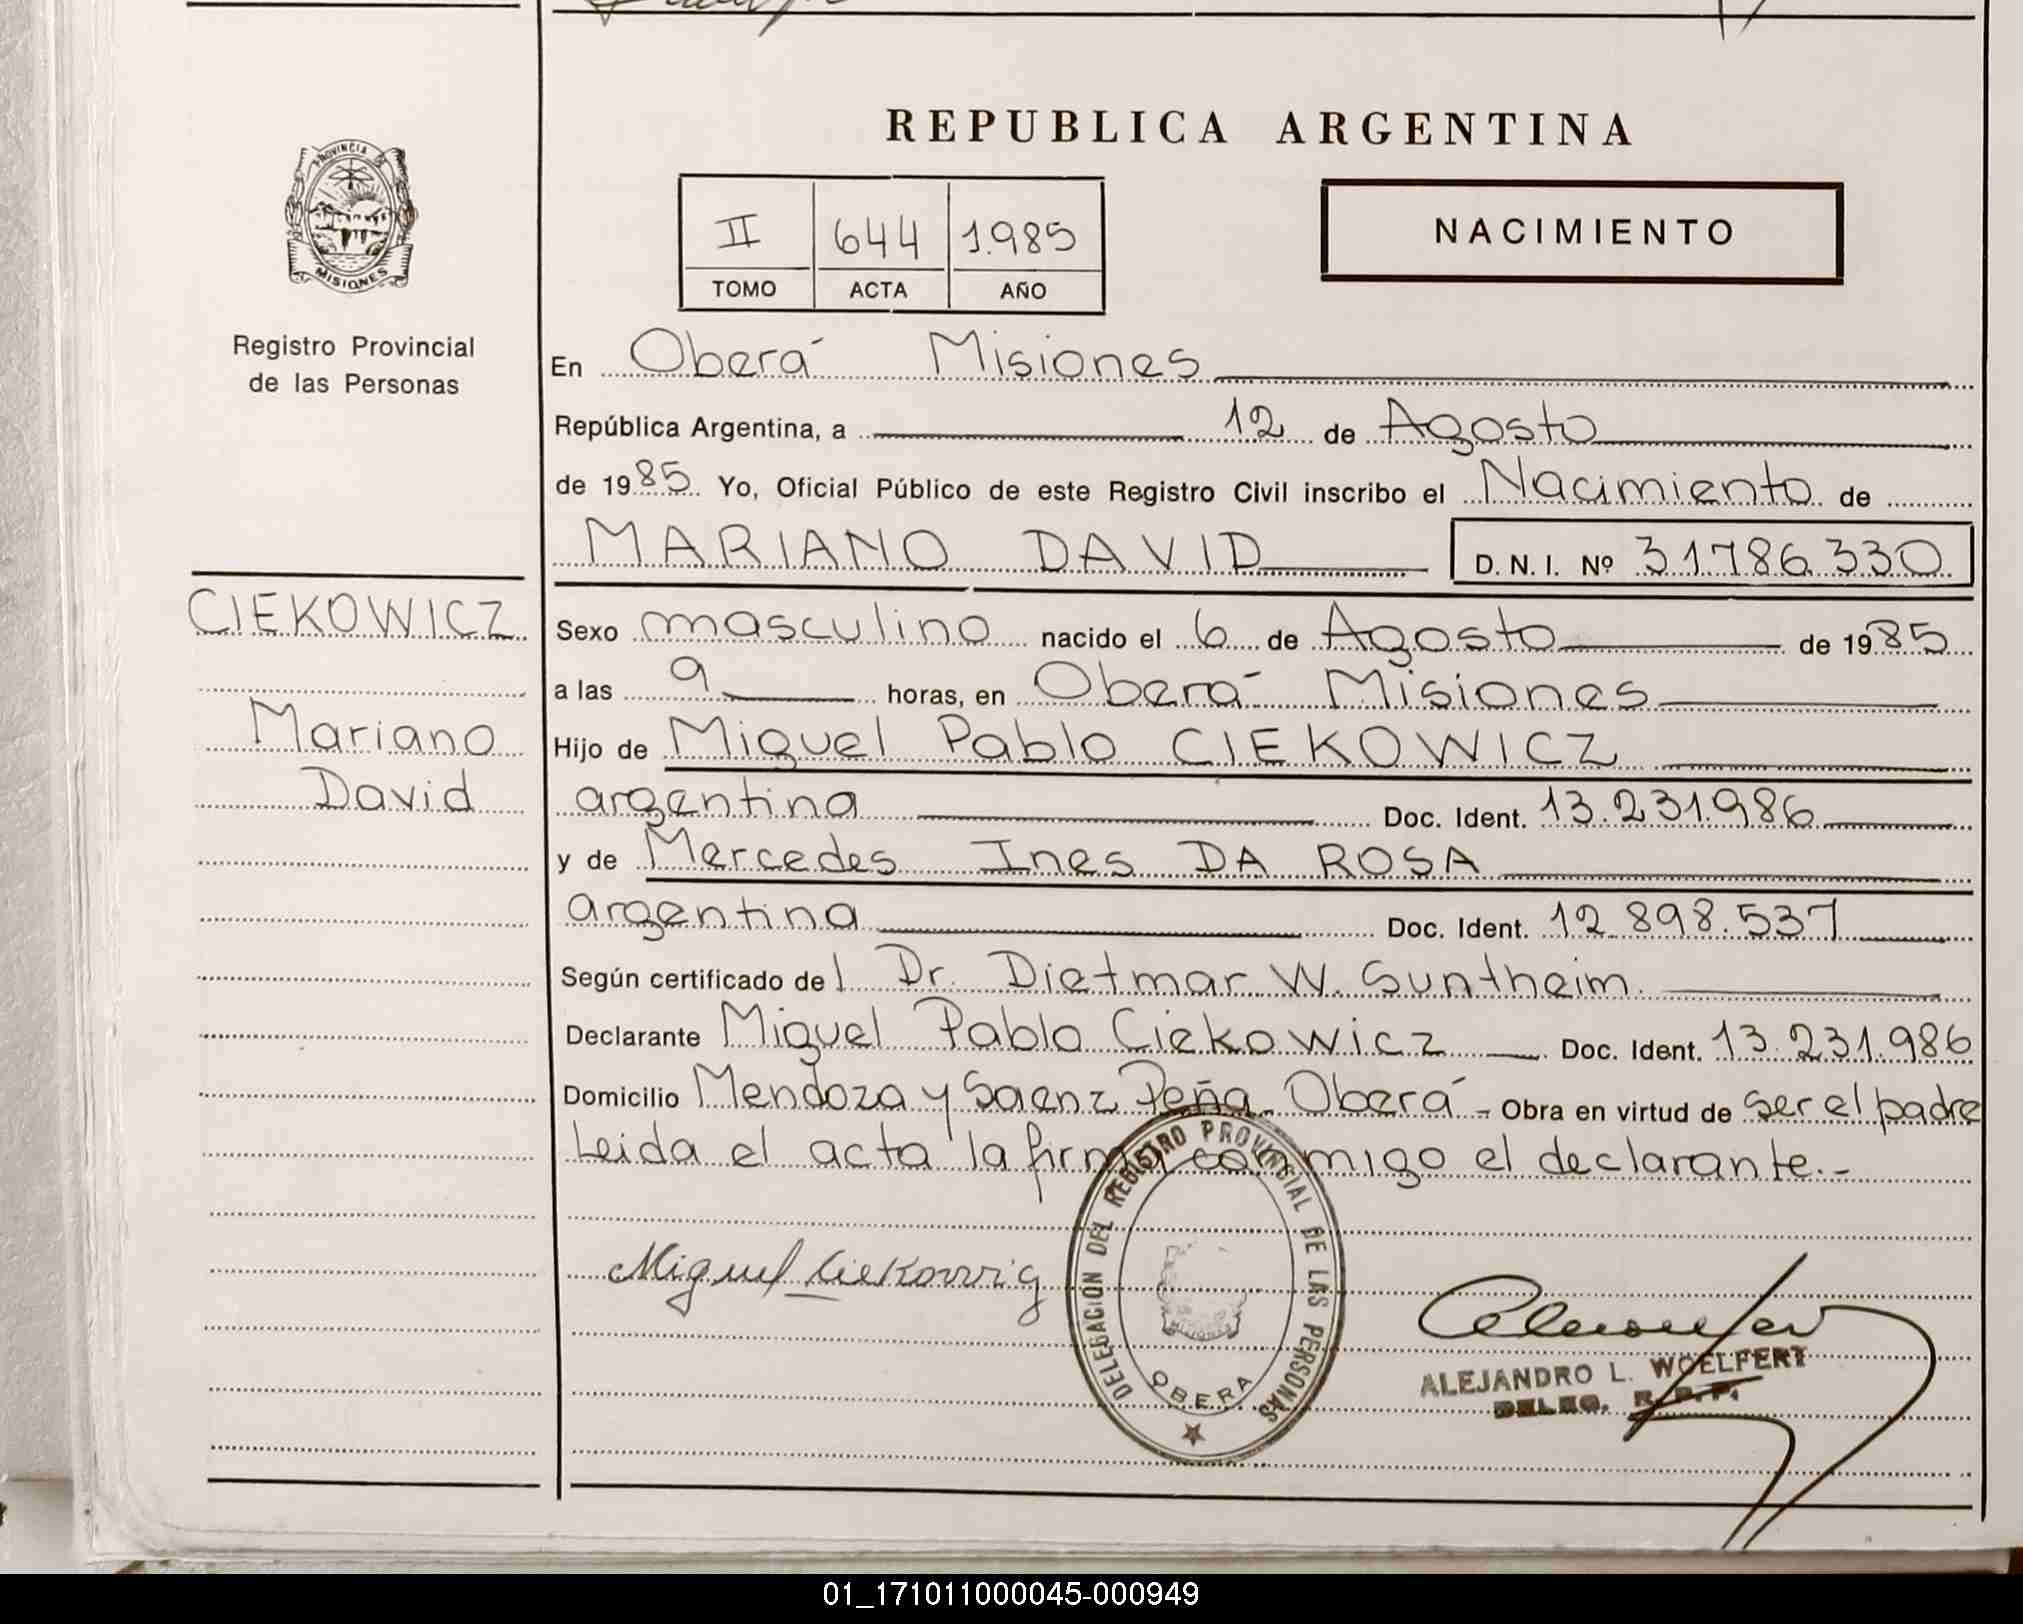 REPUBLICA ARGENTINA
PROVINCIA DE
MISIONES
Registro Provincial
de las Personas
II 644 1.985
TOMO ACTA AÑO
NACIMIENTO
En Oberá Misiones
República Argentina, a 12 de Agosto
de 1985 Yo, Oficial Público de este Registro Civil inscribo el Nacimiento de
MARIANO DAVID D. N. I. Nº 31.786.330
CIEKOWICZ
Mariano
David
Sexo masculino nacido el 6 de Agosto de 1985
a las 9 horas, en Oberá Misiones
Hijo de Miguel Pablo CIEKOWICZ
argentina Doc. Ident. 13.231.986
y de Mercedes Ines DA ROSA
argentina Doc. Ident. 12.898.537
Según certificado del Dr. Dietmar W. Suntheim
Declarante Miguel Pablo Ciekowicz Doc. Ident. 13.231.986
Domicilio Mendoza y Saenz Peña. Oberá - Obra en virtud de ser el padre
Leida el acta la firma conmigo el declarante.-
Miguel Ciekowicz
DELEGACIÓN DEL REGISTRO PROVINCIAL DE LAS PERSONAS
MISIONES
OBERA
ALEJANDRO L. WOELFERT
DELEG. R. P. P.
01_171011000045-000949